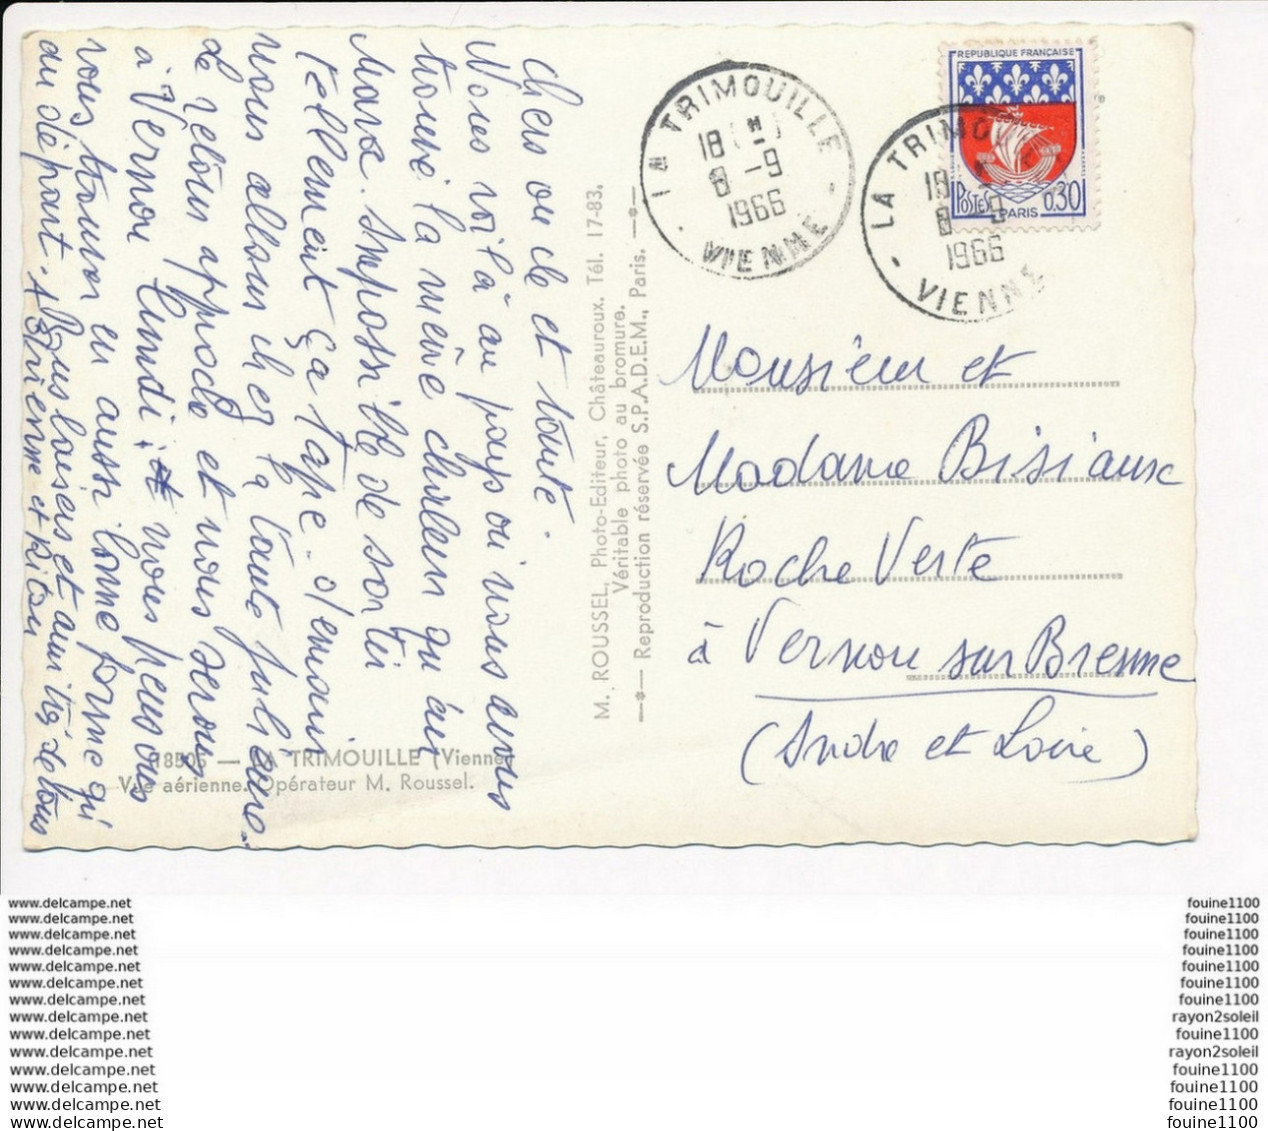 chers oncle et tante.
Nous voilà au pays où nous avons
trouvé la même chaleur qu'au
Maroc. Impossible de sortir
tellement ça tape. demain
nous allons chez la tante Julienne.
Le retour approche et nous serons
à Vernon lundi, nous pensons
vous trouver en aussi bonne forme qu'
au départ. Bons baisers et amitiés de tous
Adrienne et Riton
M. ROUSSEL, Photo-Editeur, Châteauroux. Tél. 17-83.
Véritable photo au bromure.
—*— Reproduction réservée S.P.A.D.E.M., Paris. —*—
18505 — LA TRIMOUILLE (Vienne)
Vue aérienne. Opérateur M. Roussel.
LA TRIMOUILLE
18 H
8 - 9
1966
VIENNE
LA TRIMOUILLE
18
8 - 9
1966
VIENNE
REPUBLIQUE FRANÇAISE
POSTES 0,30
PARIS
Monsieur et
Madame Bisiaux
Roche Verte
à Vernou sur Brenne
(Indre et Loire)
www.delcampe.net
www.delcampe.net
www.delcampe.net
www.delcampe.net
www.delcampe.net
www.delcampe.net
www.delcampe.net
www.delcampe.net
www.delcampe.net
www.delcampe.net
www.delcampe.net
www.delcampe.net
www.delcampe.net
www.delcampe.net
fouine1100
fouine1100
fouine1100
fouine1100
fouine1100
fouine1100
fouine1100
rayon2soleil
fouine1100
rayon2soleil
fouine1100
fouine1100
fouine1100
fouine1100